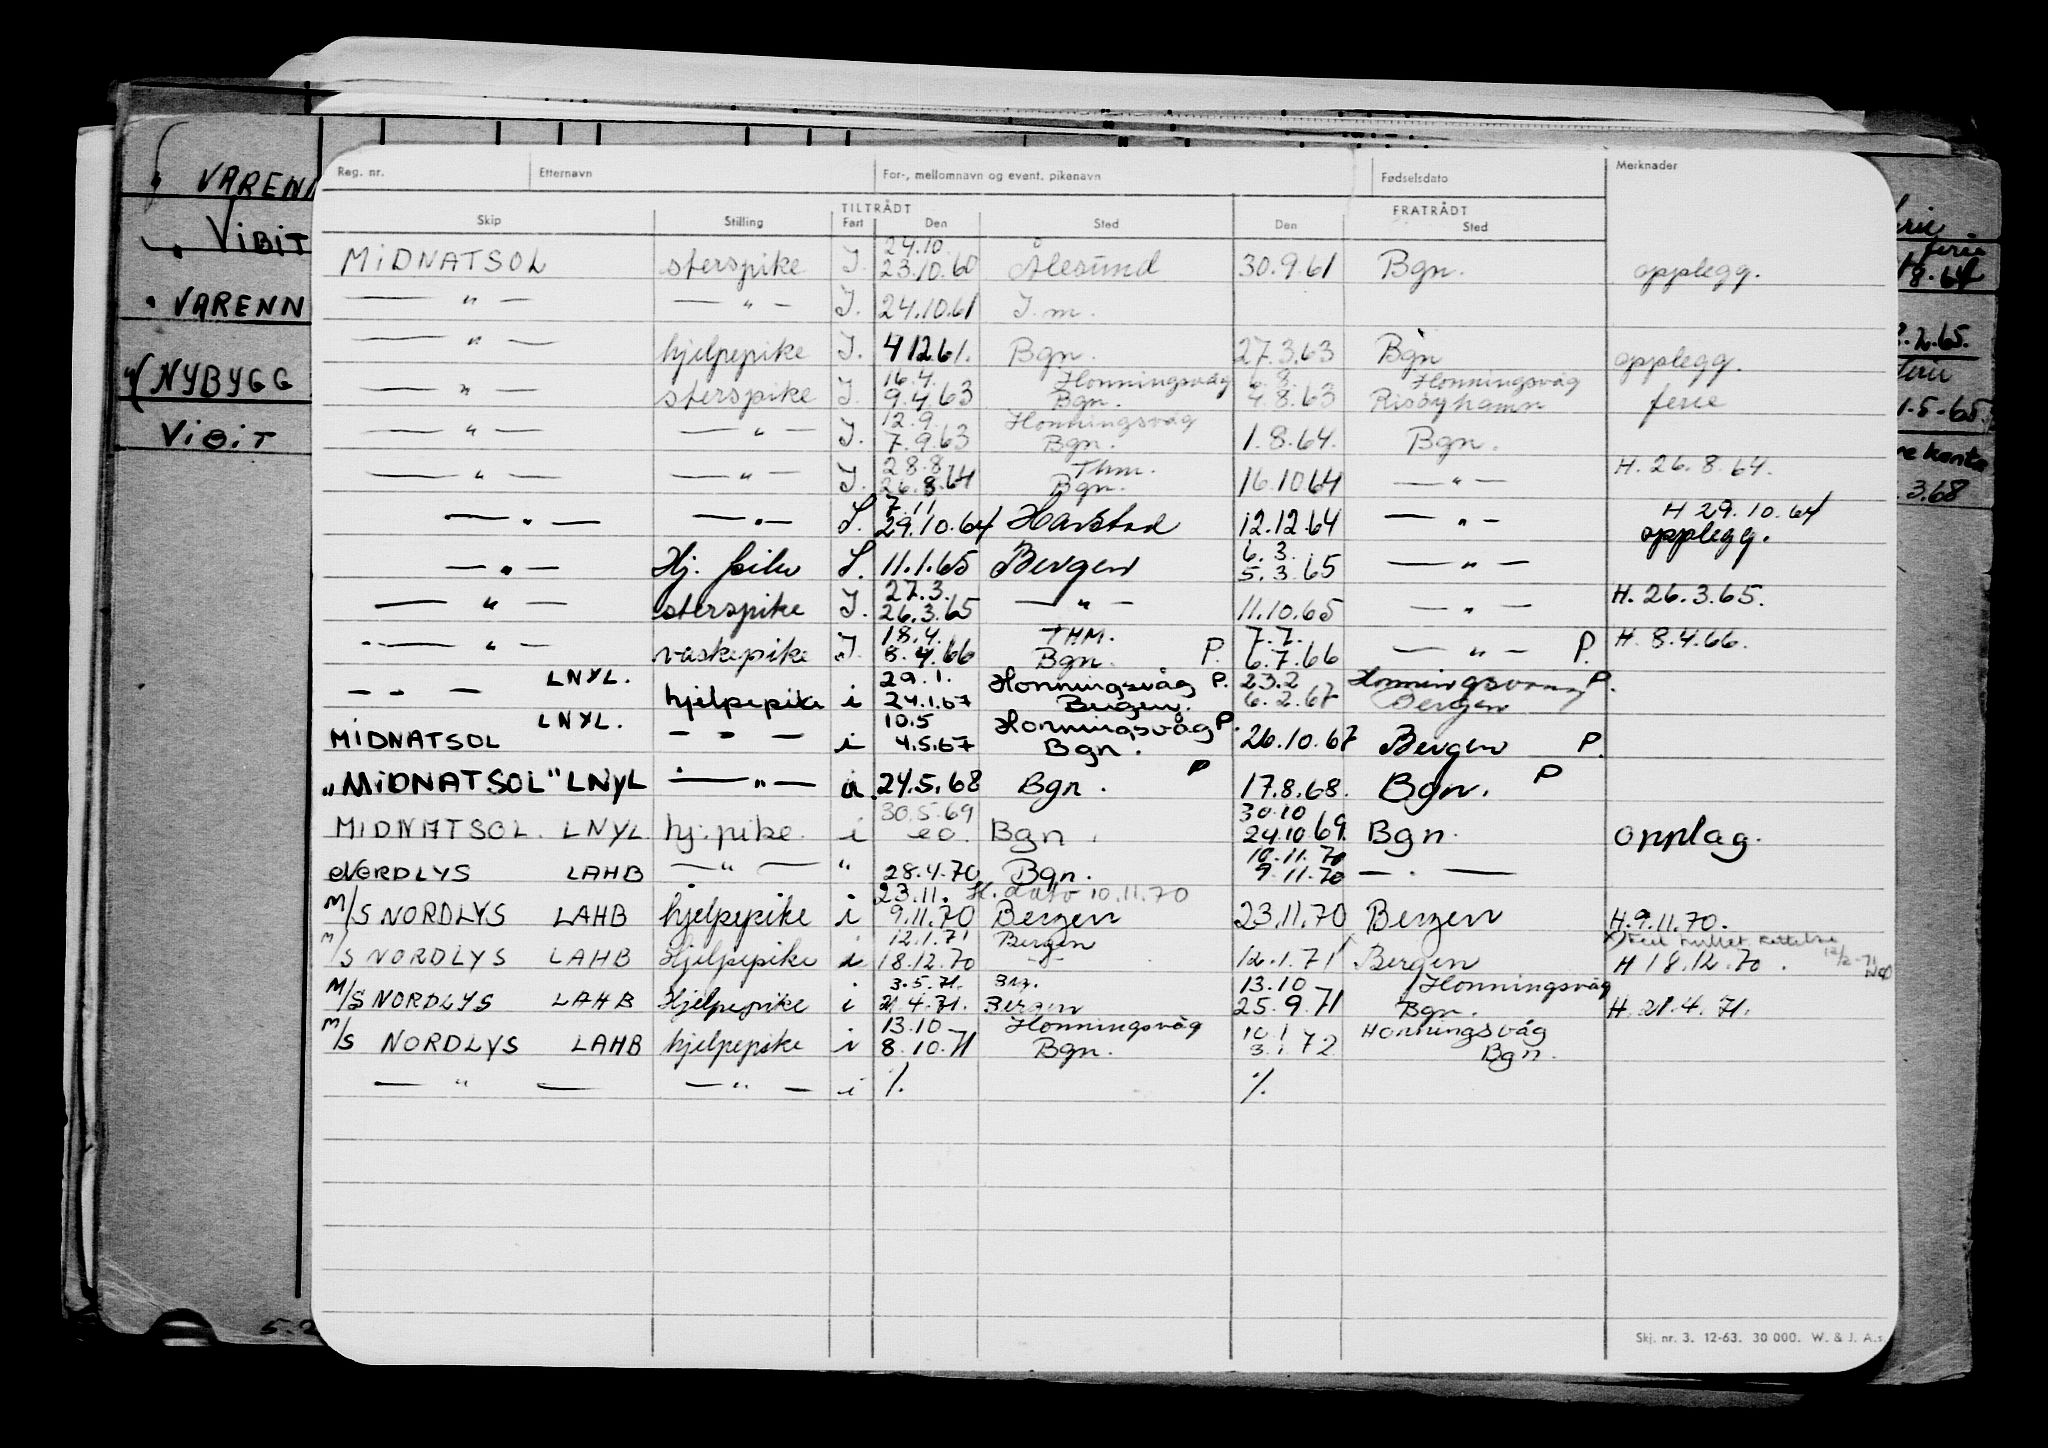 Reg. nr. Etternavn For-, mellomnavn og event. pikenavn Fødselsdato Merknader
TILTRÅDT FRATRÅDT
Skip Stilling Fart Den Sted Den Sted
24.10
MIDNATSOL sterspike I. 23.10.60 Ålesund 30.9.61 Bgn. opplegg.
— " — — " — I. 24.10.61 I.m.
— " — hjelpepike I. 4 12.61. Bgn. 27.3.63 Bgn opplegg.
16.4. Honningsvåg 6.8. Honningsvåg
— " — sterspike I. 9.4.63 Bgn. 4.8.63 Risøyhamn ferie
12.9. Honningsvåg
— " — — " — I. 7.9.63 Bgn. 1.8.64. Bgn.
28.8. Thm. H. 26.8.64.
— " — — " — I. 26.8.64 Bgn. 16.10 64 — " —
7.11 H 29.10.64
— " — — " — I. 29.10.64 Harstad 12.12.64 — " — opplegg.
6.3.
— " — Hj. pike I. 11.1.65 Bergen 5.3.65 — " —
27.3. H. 26.3.65.
— " — sterspike I. 26.3.65 — " — 11.10.65 — " —
18.4. THM. 7.7. H. 8.4.66.
— " — vaskepike I. 8.4.66 Bgn. P. 6.7.66 — " — P.
LNYL. 29.1. Honningsvåg P. 23.2 Honningsvaag P.
— " — hjelpepike i 24.1.67 Bergen. 6.2.67 Bergen
LNYL. 10.5 Honningsvåg P.
MIDNATSOL — " — i 4.5.67 Bgn. 26.10.67 Bergen P.
"MIDNATSOL" LNYL — " — 24.5.68 Bgn. P 17.8.68. Bgn. P
30.5.69 30.10
MIDNATSOL. LNYL. hj. pike. i eo. Bgn. 24.10.69. Bgn. opplag.
10.11.70
NORDLYS LAHB — " — " 28.4.70 Bgn. 9.11.70 — " —
23.11. H. dato 10.11.70
M/S NORDLYS LAHB hjelpepike i 9.11.70 Bergen 23.11.70 Bergen H.9.11.70.
12.1.71 Bergen
M/S NORDLYS LAHB Hjelpepike i 18.12.70 — " — 12.1.71 Bergen H 18.12.70.
3.5.71. Brg. 13.10 Honningsvåg
M/S NORDLYS LAHB Hjelpepike i 21.4.71. Bergen 25.9.71 Bgn. H. 21.4.71.
13.10 Honningsvåg 10.1 Honningsvåg
M/S NORDLYS LAHB hjelpepike i 8.10.71 Bgn. 3.1.72 Bgn.
— " — — " — i %. %.
Skj. nr. 3. 12-63. 30 000. W. & J. A.s
VARENN
VIBIT
VARENN
NYBYGG
VIBIT
ferie
8.64
2.65.
1.5-65
3.68